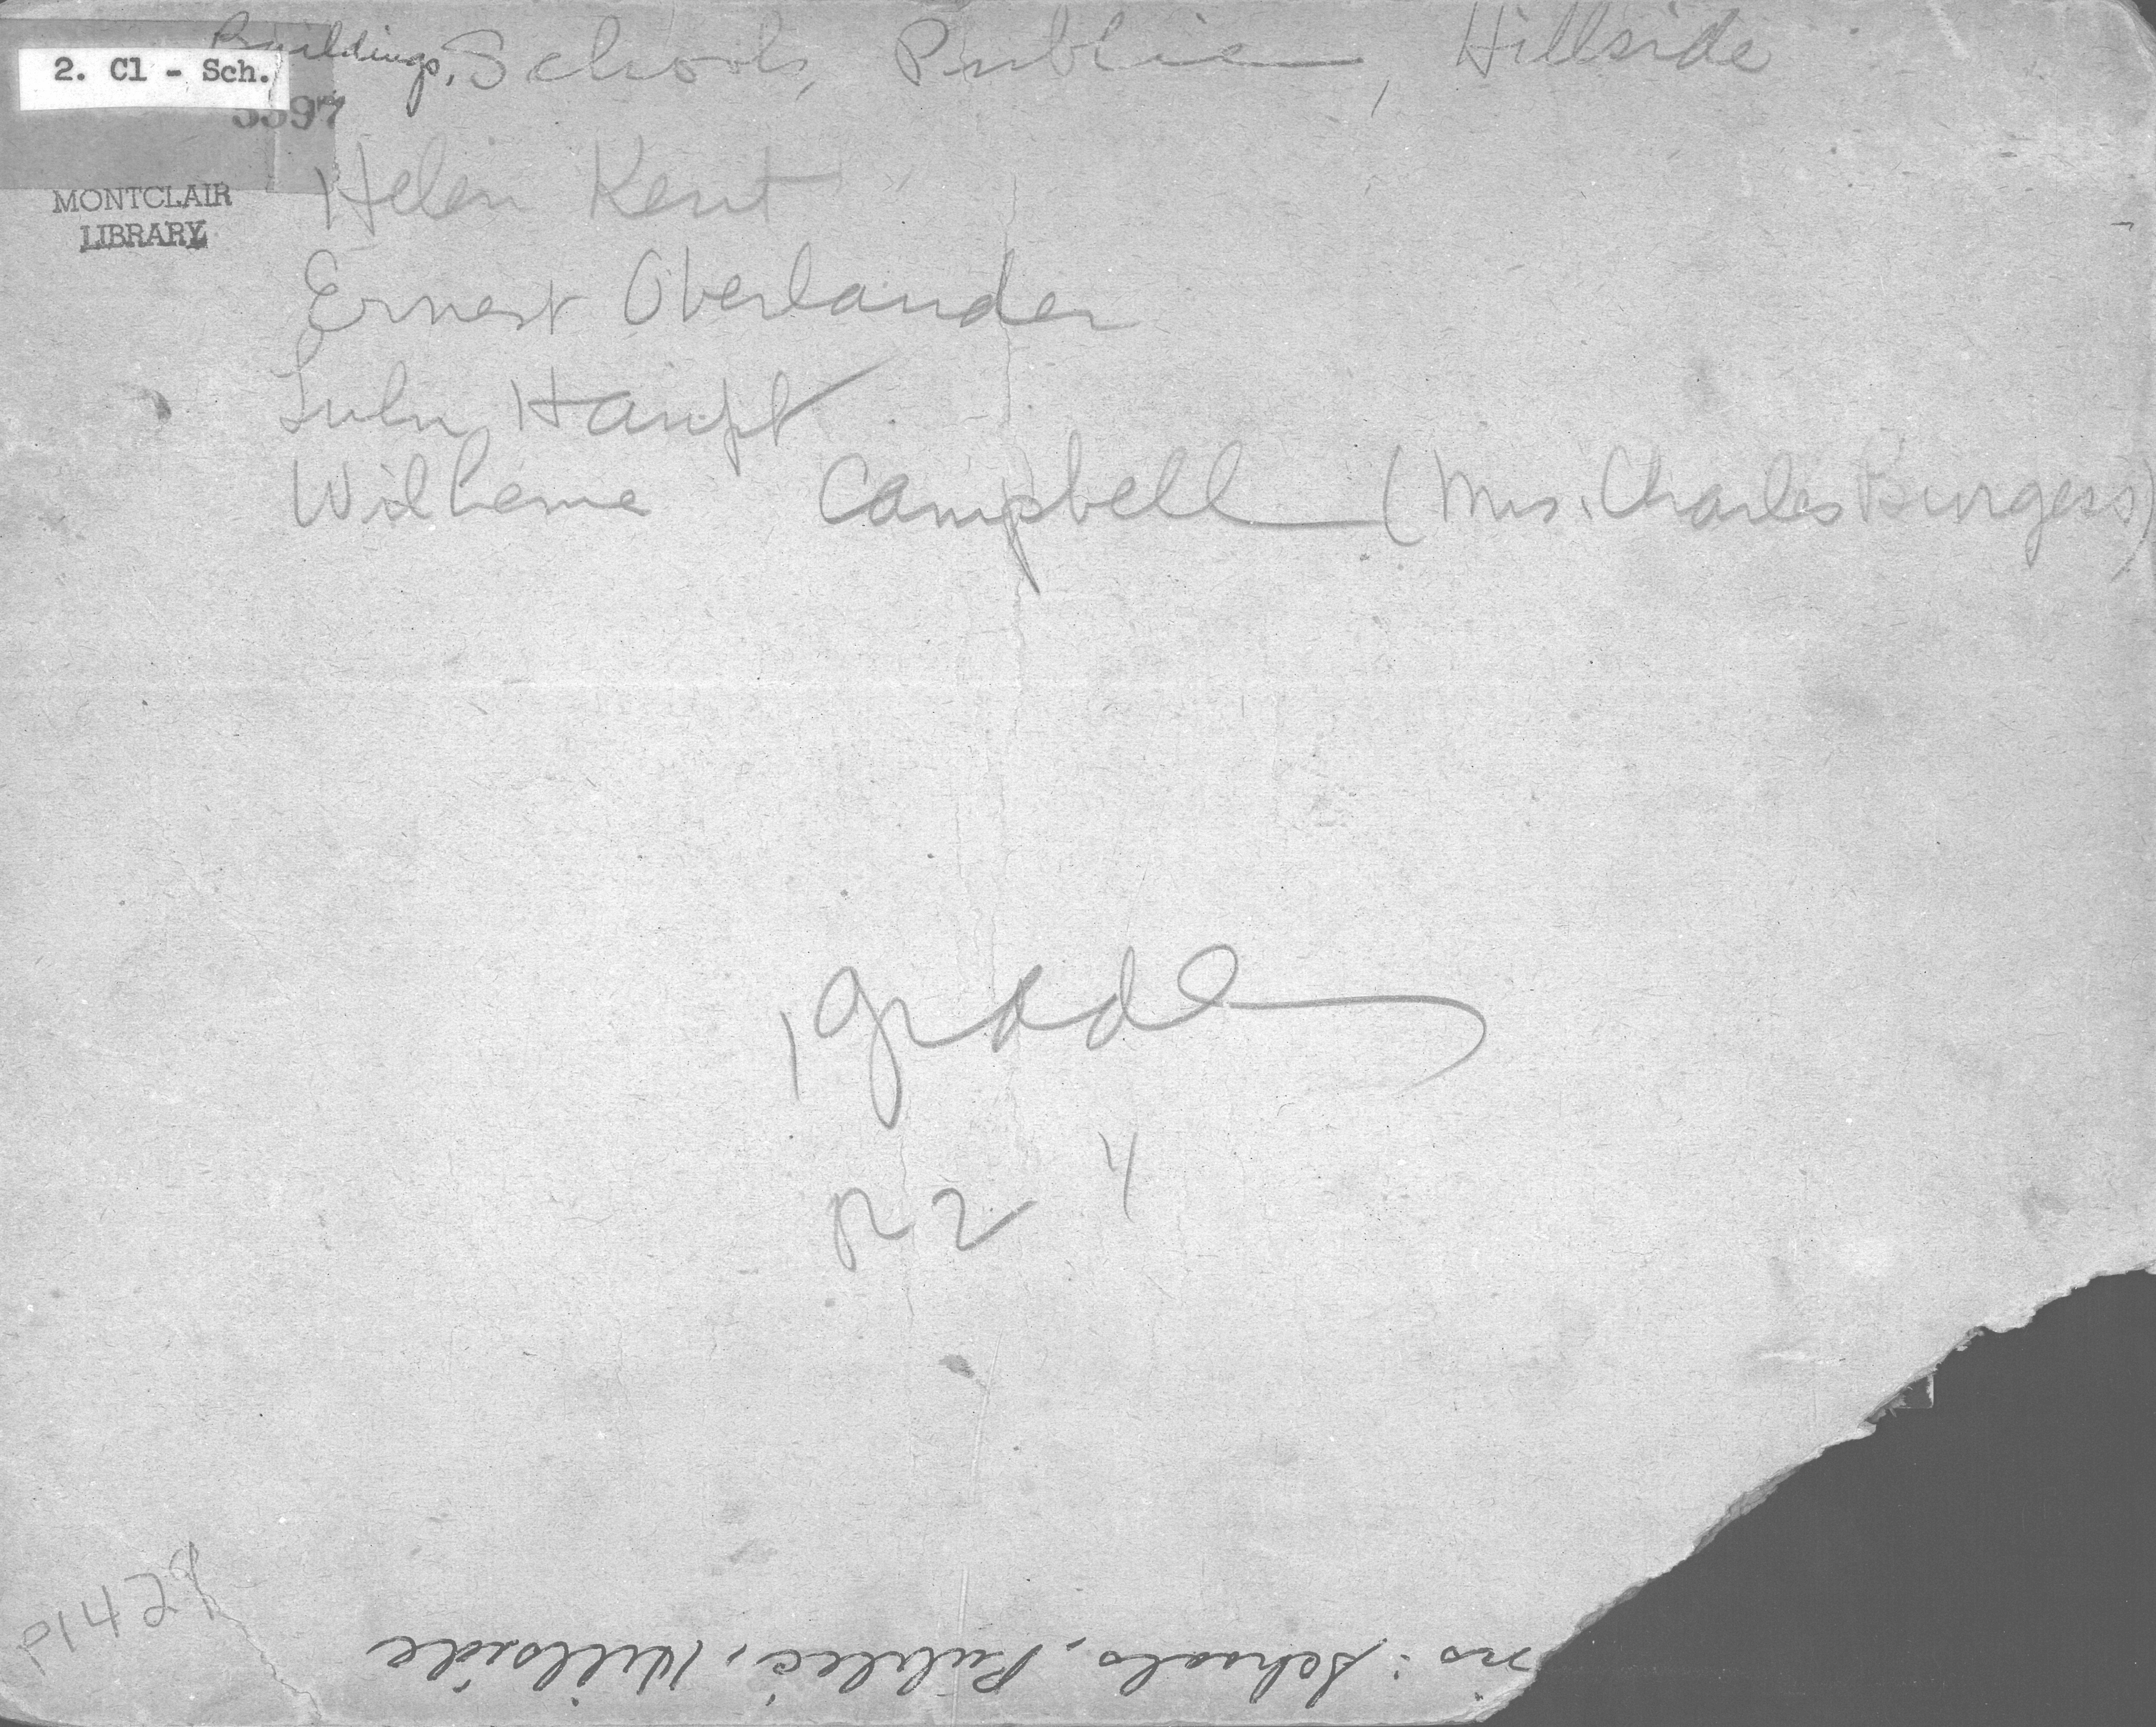 Buildings, Schools, Public, Hillside
2. Cl - Sch.
3397
MONTCLAIR
LIBRARY
Helen Kent
Ernest Oberlander
Lulu Haupt
Wilheme Campbell (Mrs. Charles Burgess)
1 grade
R 2 4
P1428
: Schools, Public, Hillside